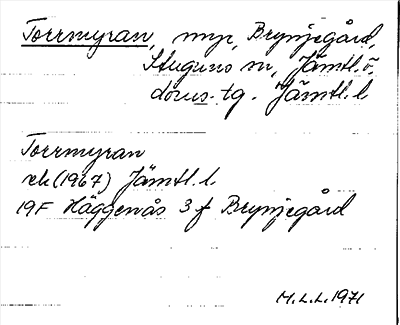 Torrmyran, myr, Brynjegård,
Stuguns sn, Jämtl. ö.
doms. tg. Jämtl. l
Torrmyran
rek (1967) Jämtl. l.
19F Häggenås 3 f Brynjegård
M.L.L. 1971